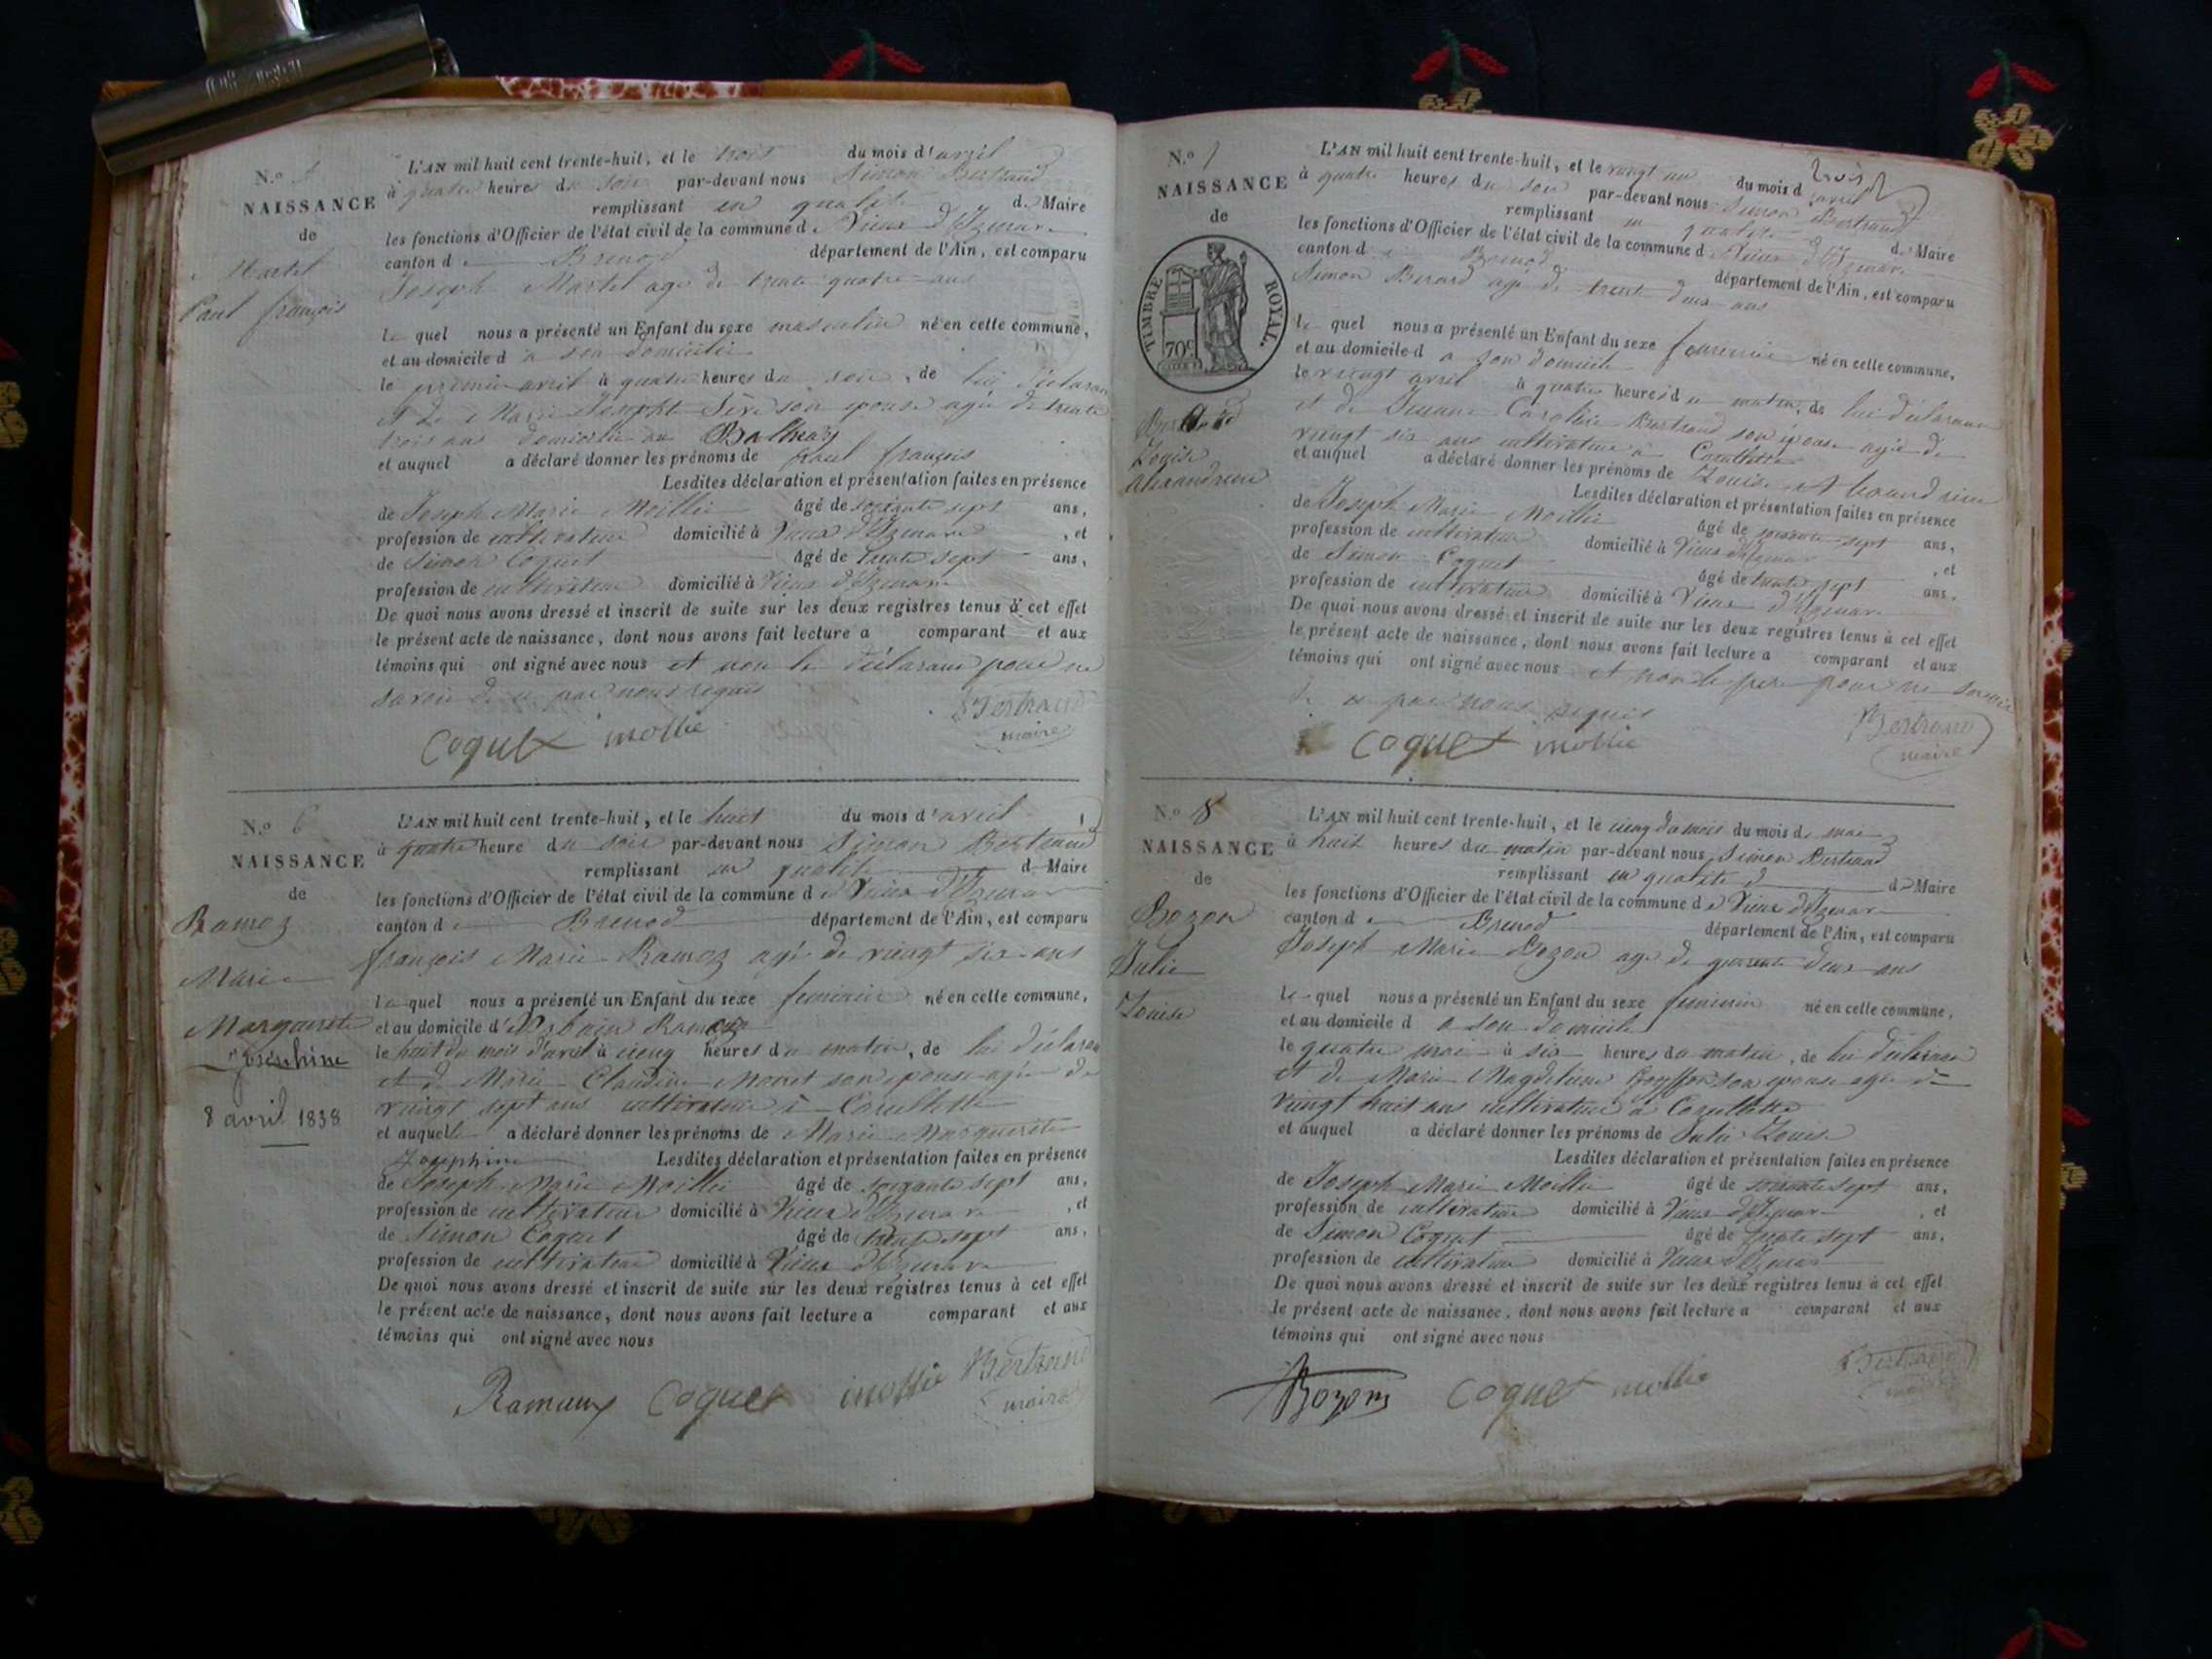 N.º 5
NAISSANCE
de
Martel
Paul françois
L'AN mil huit cent trente-huit, et le trois du mois d'avril
à quatre heures du soir par-devant nous Simon Bertrand
remplissant en qualité de Maire
les fonctions d'Officier de l'état civil de la commune de Vieux d'Izenave
canton de Brenod département de l'Ain, est comparu
Joseph Martel agé de trente quatre ans
le quel nous a présenté un Enfant du sexe masculin né en cette commune,
et au domicile d a son domicile
le premier avril à quatre heures du soir, de lui déclarant
et de Marie Josephte son epouse agée de trente
trois ans domicilié au Balmay
et auquel a déclaré donner les prénoms de Paul françois
Lesdites déclaration et présentation faites en présence
de Joseph Marie Moillie âgé de soixante sept ans,
profession de cultivateur domicilié à Vieux d'Izenave, et
de Simon Coquet âgé de trente sept ans,
profession de cultivateur domicilié à Vieux d'Izenave
De quoi nous avons dressé et inscrit de suite sur les deux registres tenus à cet effet
le présent acte de naissance, dont nous avons fait lecture a comparant et aux
témoins qui ont signé avec nous et non le déclarant pour ne
savoir de ce par nous requis
Coquet mollie Bertrand
maire
N.º 6
NAISSANCE
de
Ramoz
Marie
Marguerite
Joséphine
8 avril 1838
L'AN mil huit cent trente-huit, et le huit du mois d'avril
à quatre heure du soir par-devant nous Simon Bertrand
remplissant en qualité d Maire
les fonctions d'Officier de l'état civil de la commune de Vieux d'Izenave
canton de Brenod département de l'Ain, est comparu
françois Marie Ramoz agé de vingt six ans
le quel nous a présenté un Enfant du sexe feminin né en cette commune,
et au domicile d'Urbain Ramoz
le huit du mois d'avril à cinq heures du matin, de lui déclarant
et de Marie Claudine Monet son epouse agée de
vingt sept ans cultivateur à Corcellette
et auquelle a déclaré donner les prénoms de Marie Marguerite
Josephine Lesdites déclaration et présentation faites en présence
de Joseph Marie Moillie âgé de soixante sept ans,
profession de cultivateur domicilié à Vieux d'Izenave, et
de Simon Coquet âgé de trente sept ans,
profession de cultivateur domicilié à Vieux d'Izenave
De quoi nous avons dressé et inscrit de suite sur les deux registres tenus à cet effet
le présent acte de naissance, dont nous avons fait lecture a comparant et aux
témoins qui ont signé avec nous
Ramuz Coquet mollie Bertrand
maire
N.º 7
NAISSANCE
de
TIMBRE ROYAL.
70c
Louise
alexandrine
L'AN mil huit cent trente-huit, et le vingt un du mois d'avril
à quatre heures du soir par-devant nous Simon Bertrand
remplissant en qualité de Maire
les fonctions d'Officier de l'état civil de la commune de Vieux d'Izenave
canton de Brenod département de l'Ain, est comparu
Simon Berard agé de trente deux ans
le quel nous a présenté un Enfant du sexe feminin né en cette commune,
et au domicile d a son domicile
le vingt avril à quatre heures du matin, de lui déclarant
et de Jeanne Caroline Bertrand son épouse agée de
vingt six ans cultivateur à Corcellette
et auquel a déclaré donner les prénoms de Louise Alexandrine
Lesdites déclaration et présentation faites en présence
de Joseph Marie Moillie âgé de soixante sept ans,
profession de cultivateur domicilié à Vieux d'Izenave, et
de Simon Coquet âgé de trente sept ans,
profession de cultivateur domicilié à Vieux d'Izenave
De quoi nous avons dressé et inscrit de suite sur les deux registres tenus à cet effet
le présent acte de naissance, dont nous avons fait lecture a comparant et aux
témoins qui ont signé avec nous et non le pere pour ne savoir
de ce par nous requis
Coquet mollie Bertrand
maire
N.º 8
NAISSANCE
de
Bozon
Julie
Louise
L'AN mil huit cent trente-huit, et le cinq du mois du mois de mai
à huit heures du matin par-devant nous Simon Bertrand
remplissant en qualité d de Maire
les fonctions d'Officier de l'état civil de la commune de Vieux d'Izenave
canton de Brenod département de l'Ain, est comparu
Joseph Marie Bozon agé de quarante deux ans
le quel nous a présenté un Enfant du sexe feminin né en cette commune,
et au domicile d a son domicile
le quatre mai à six heures du matin, de lui déclarant
et de Marie Magdeleine son epouse agée de
vingt huit ans cultivateur à Corcellette
et auquel a déclaré donner les prénoms de Julie Louise
Lesdites déclaration et présentation faites en présence
de Joseph Marie Moillie âgé de soixante sept ans,
profession de cultivateur domicilié à Vieux d'Izenave, et
de Simon Coquet âgé de trente sept ans,
profession de cultivateur domicilié à Vieux d'Izenave
De quoi nous avons dressé et inscrit de suite sur les deux registres tenus à cet effet
le présent acte de naissance, dont nous avons fait lecture a comparant et aux
témoins qui ont signé avec nous
Bozon Coquet mollie Bertrand
maire